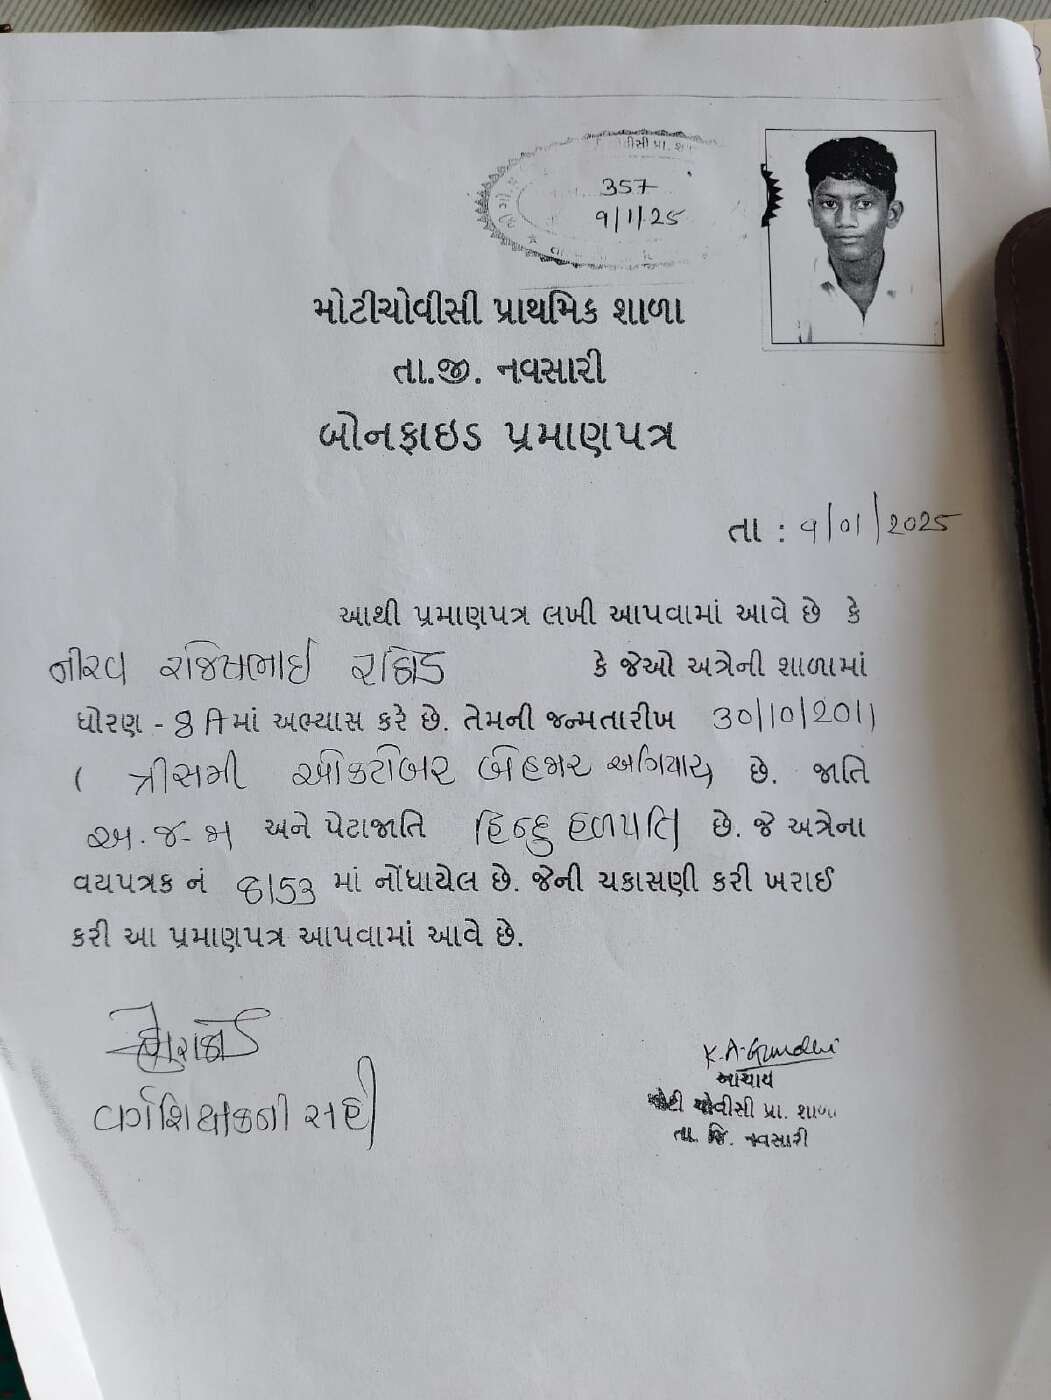 357
૧/1/25
મોટીચોવીસી પ્રાથમિક શાળા
તા.જી. નવસારી
બોનફાઇડ પ્રમાણપત્ર
તા : ૧/01/2025
આથી પ્રમાણપત્ર લખી આપવામાં આવે છે કે
નીરવ રાઠોડ કે જેઓ અત્રેની શાળામાં
ધોરણ - 8 A માં અભ્યાસ કરે છે. તેમની જન્મતારીખ 30/10/2011
( ત્રીસમી ઓકટોબર બેહજાર અગિયાર) છે. જાતિ
અ.જ.જા અને પેટાજાતિ હિન્દુ હળપતિ છે. જે અત્રેના
વયપત્રક નં 8153 માં નોંધાયેલ છે. જેની ચકાસણી કરી ખરાઈ
કરી આ પ્રમાણપત્ર આપવામાં આવે છે.
વર્ગશિક્ષકની સહી
K.A.Gandhi
આચાર્ય
મોટી ચોવીસી પ્રા. શાળા
તા. જિ. નવસારી